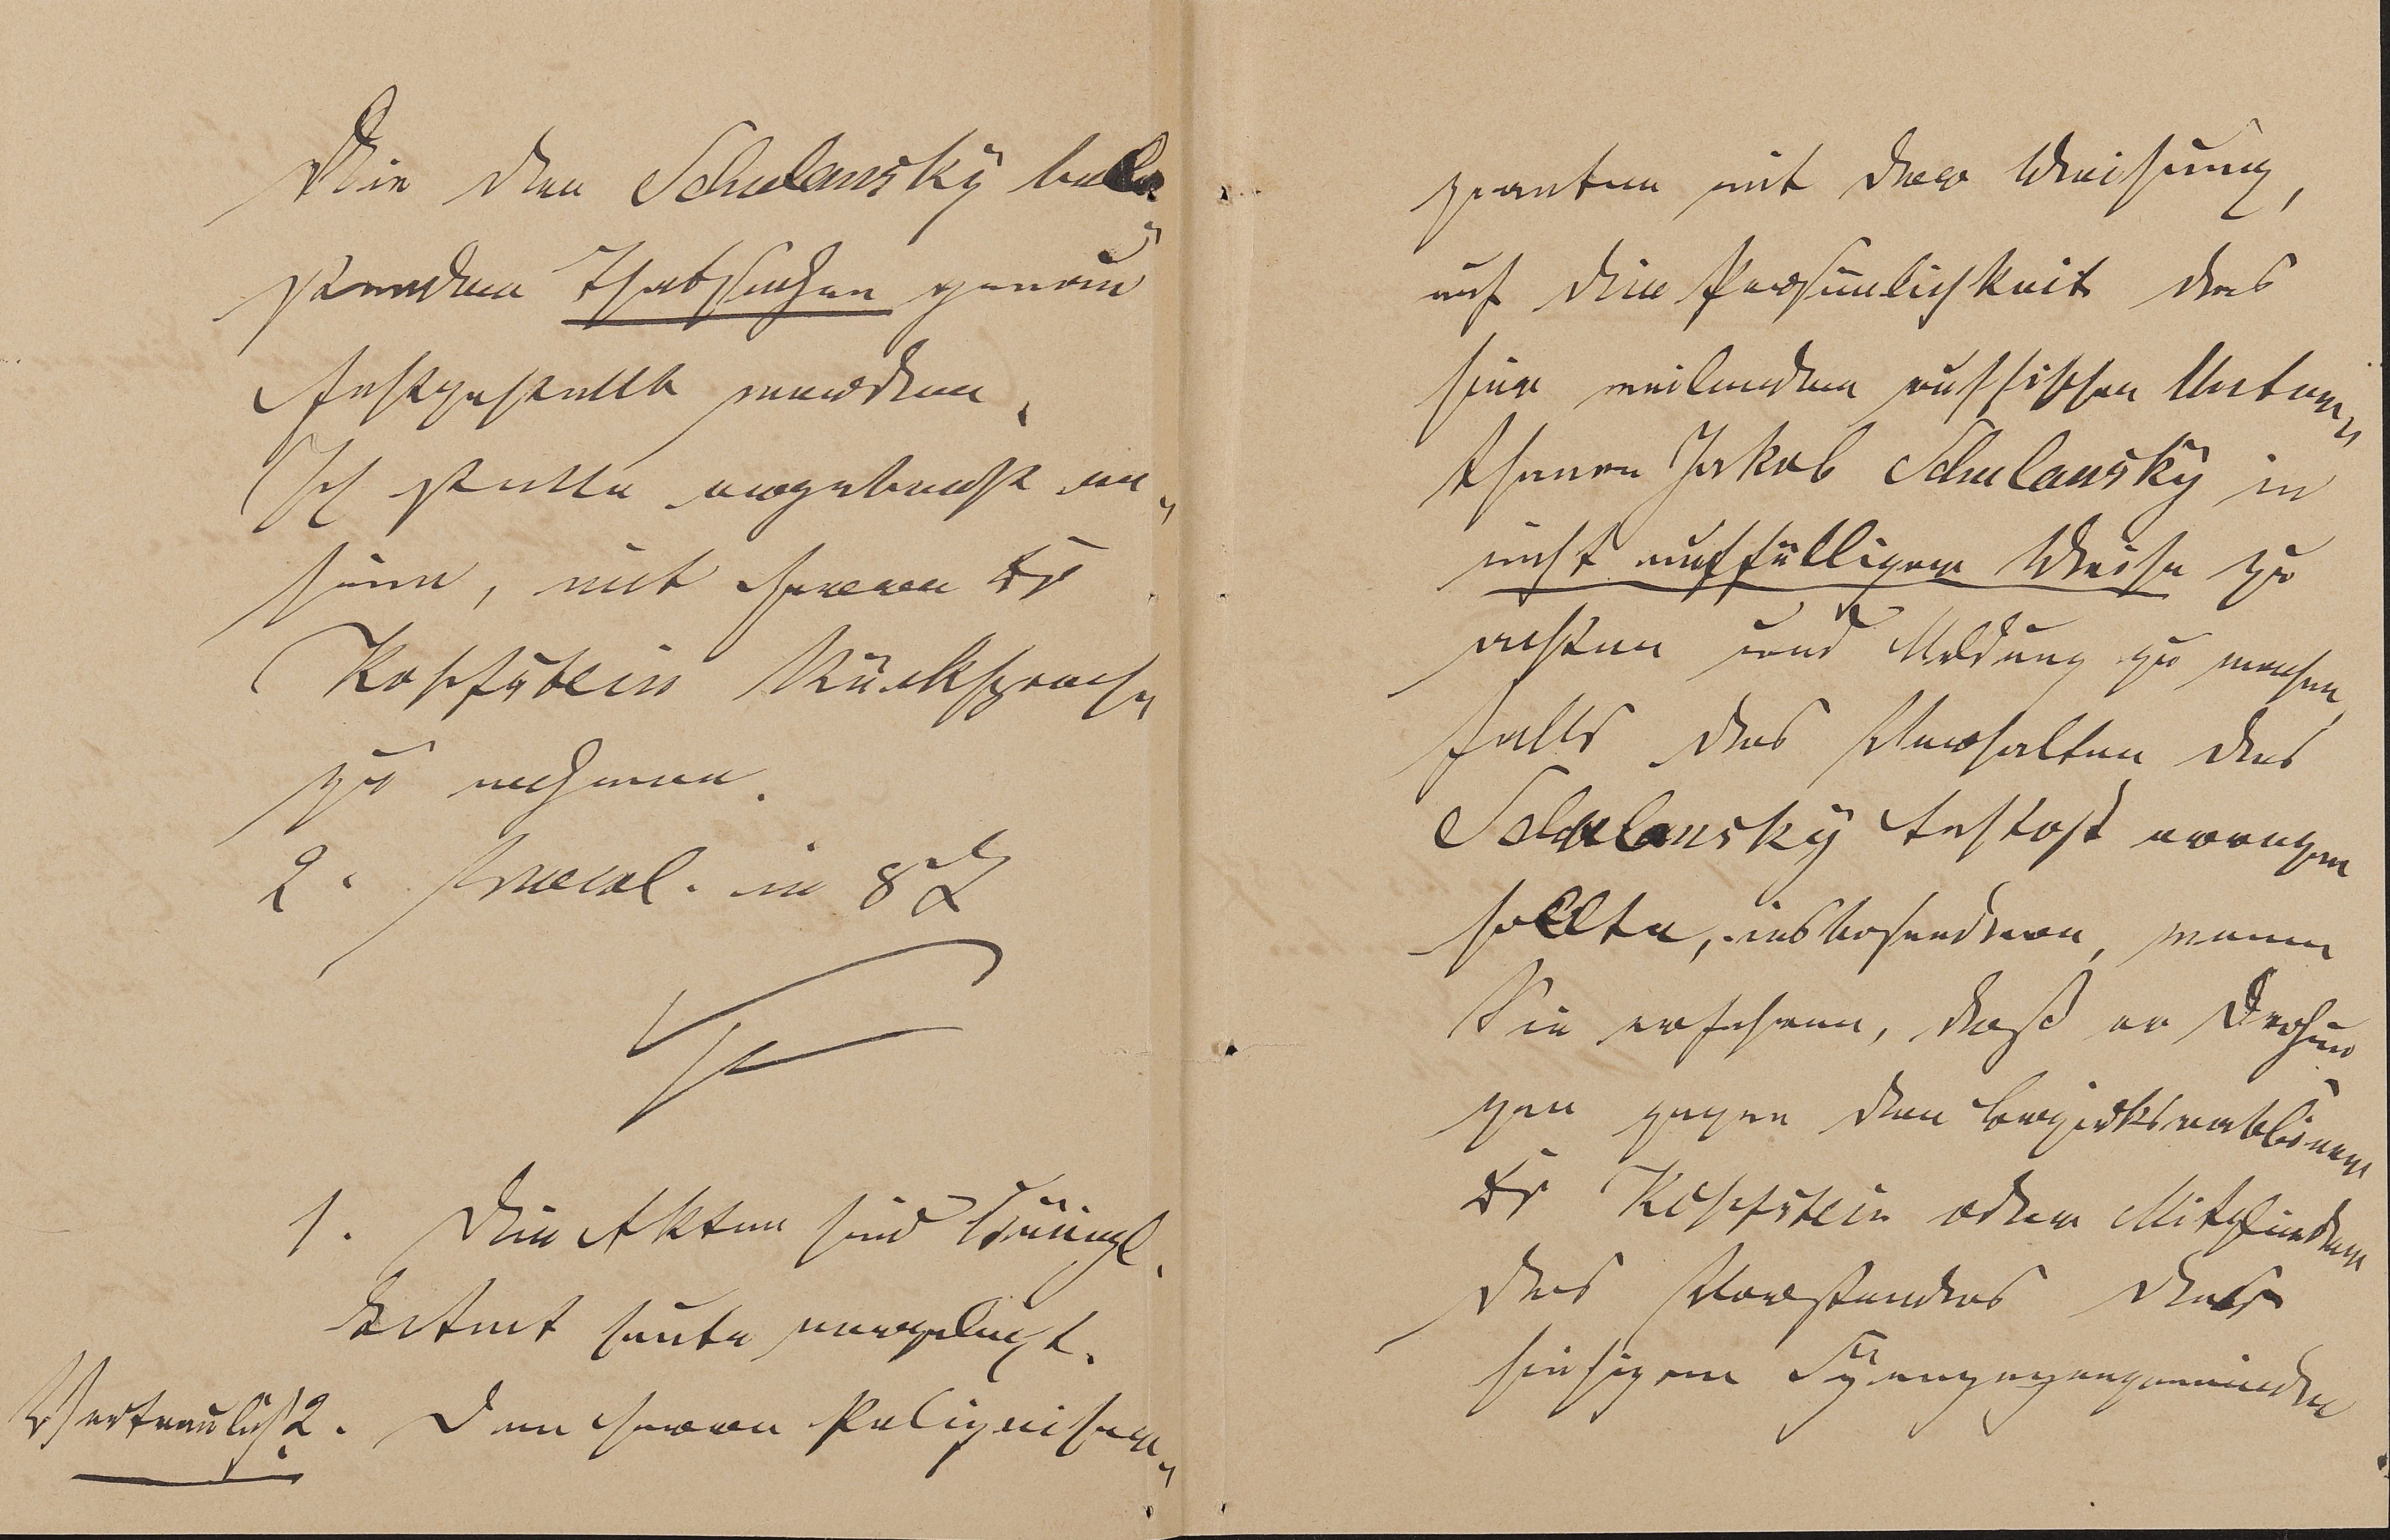 Die den Schulansky bela-
stenden Thatsachen genau
festgestellt werden.
Ich stelle ergebenst an-
heim, mit Herrn Dr
Kopfstein Rücksprache
zu nehmen.
2. in 8 T
1. Die Akten sind
heute vorgelegt.
Vertraulich! 2. Dem Herrn Polizeiser-
geanten mit der Weisung,
auf die Persönlichkeit des
hier weilenden russischen Unter-
thanen Jakob Schulansky in
nicht auffälliger Weise zu
achten und Meldung zu machen,
falls das Verhalten des
Schulansky Verdacht erregen
sollte, insbesondere, wenn
Sie erfahren, daß er Drohun
gen gegen den Bezirksrabbiner
Dr Kopfstein oder Mitglieder
des Vorstandes der
hiesigen Synagogengemeinde